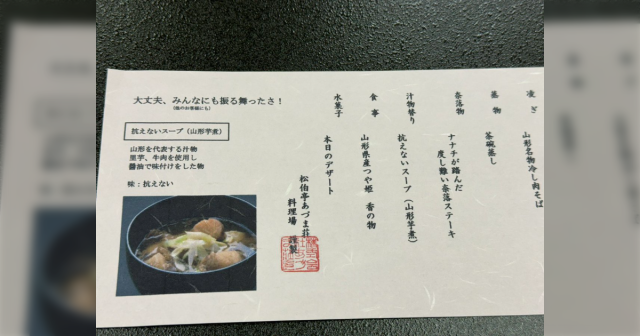 大丈夫、みんなにも振る舞ったさ！
(他のお客様にも)
抗えないスープ（山形芋煮）
山形を代表する汁物
里芋、牛肉を使用し
醬油で味付けをした物
味：抗えない
凌ぎ　山形名物冷し肉そば
蒸物　茶碗蒸し
奈落物　ナナチが踏んだ
度し難い奈落ステーキ
汁物替り　抗えないスープ（山形芋煮）
食事　山形県産つや姫　香の物
水菓子　本日のデザート
松伯亭あづま荘
料理場　謹製